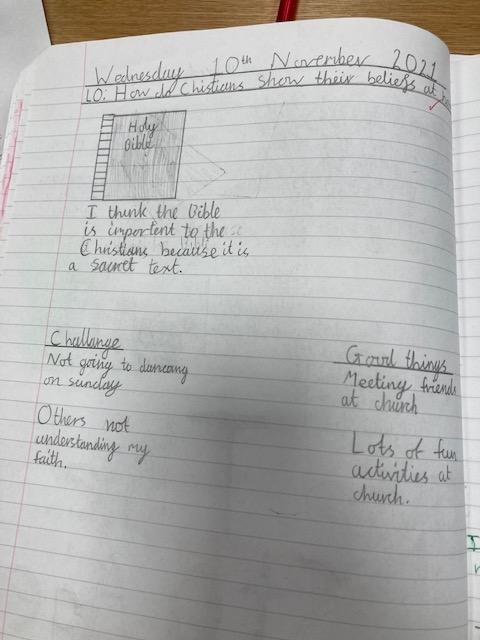 Wednesday 10th November 2021
LO: How do Chistians show their beliefs at
Holy
Bible
I think the Bible
is importent to the
Christians because it is
a sacret text.
Challange
Not going to dancang
on sunday
Others not
understanding my
faith.
Good things
Meeting friends
at church
Lots of fun
activities at
church.
I